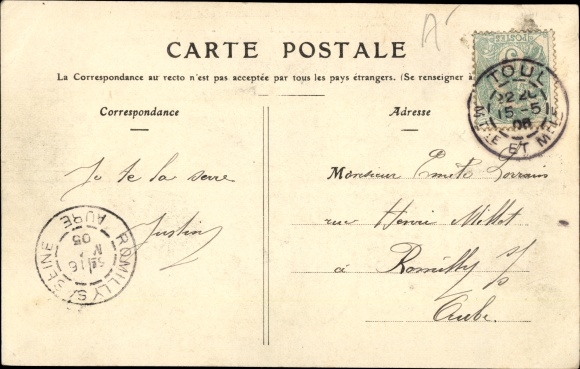 A
CARTE POSTALE
La Correspondance au recto n'est pas acceptée par tous les pays étrangers. (Se renseigner à
Correspondance
Adresse
POSTES
5
TOUL
15 -5
MTHE ET MELLE
Je te la serre
Justin
Monsieur Emile Lorrain
rue Henri Millot
à Romilly s/s
Aube.
ROMILLY S/ SEINE
AUBE
16
05